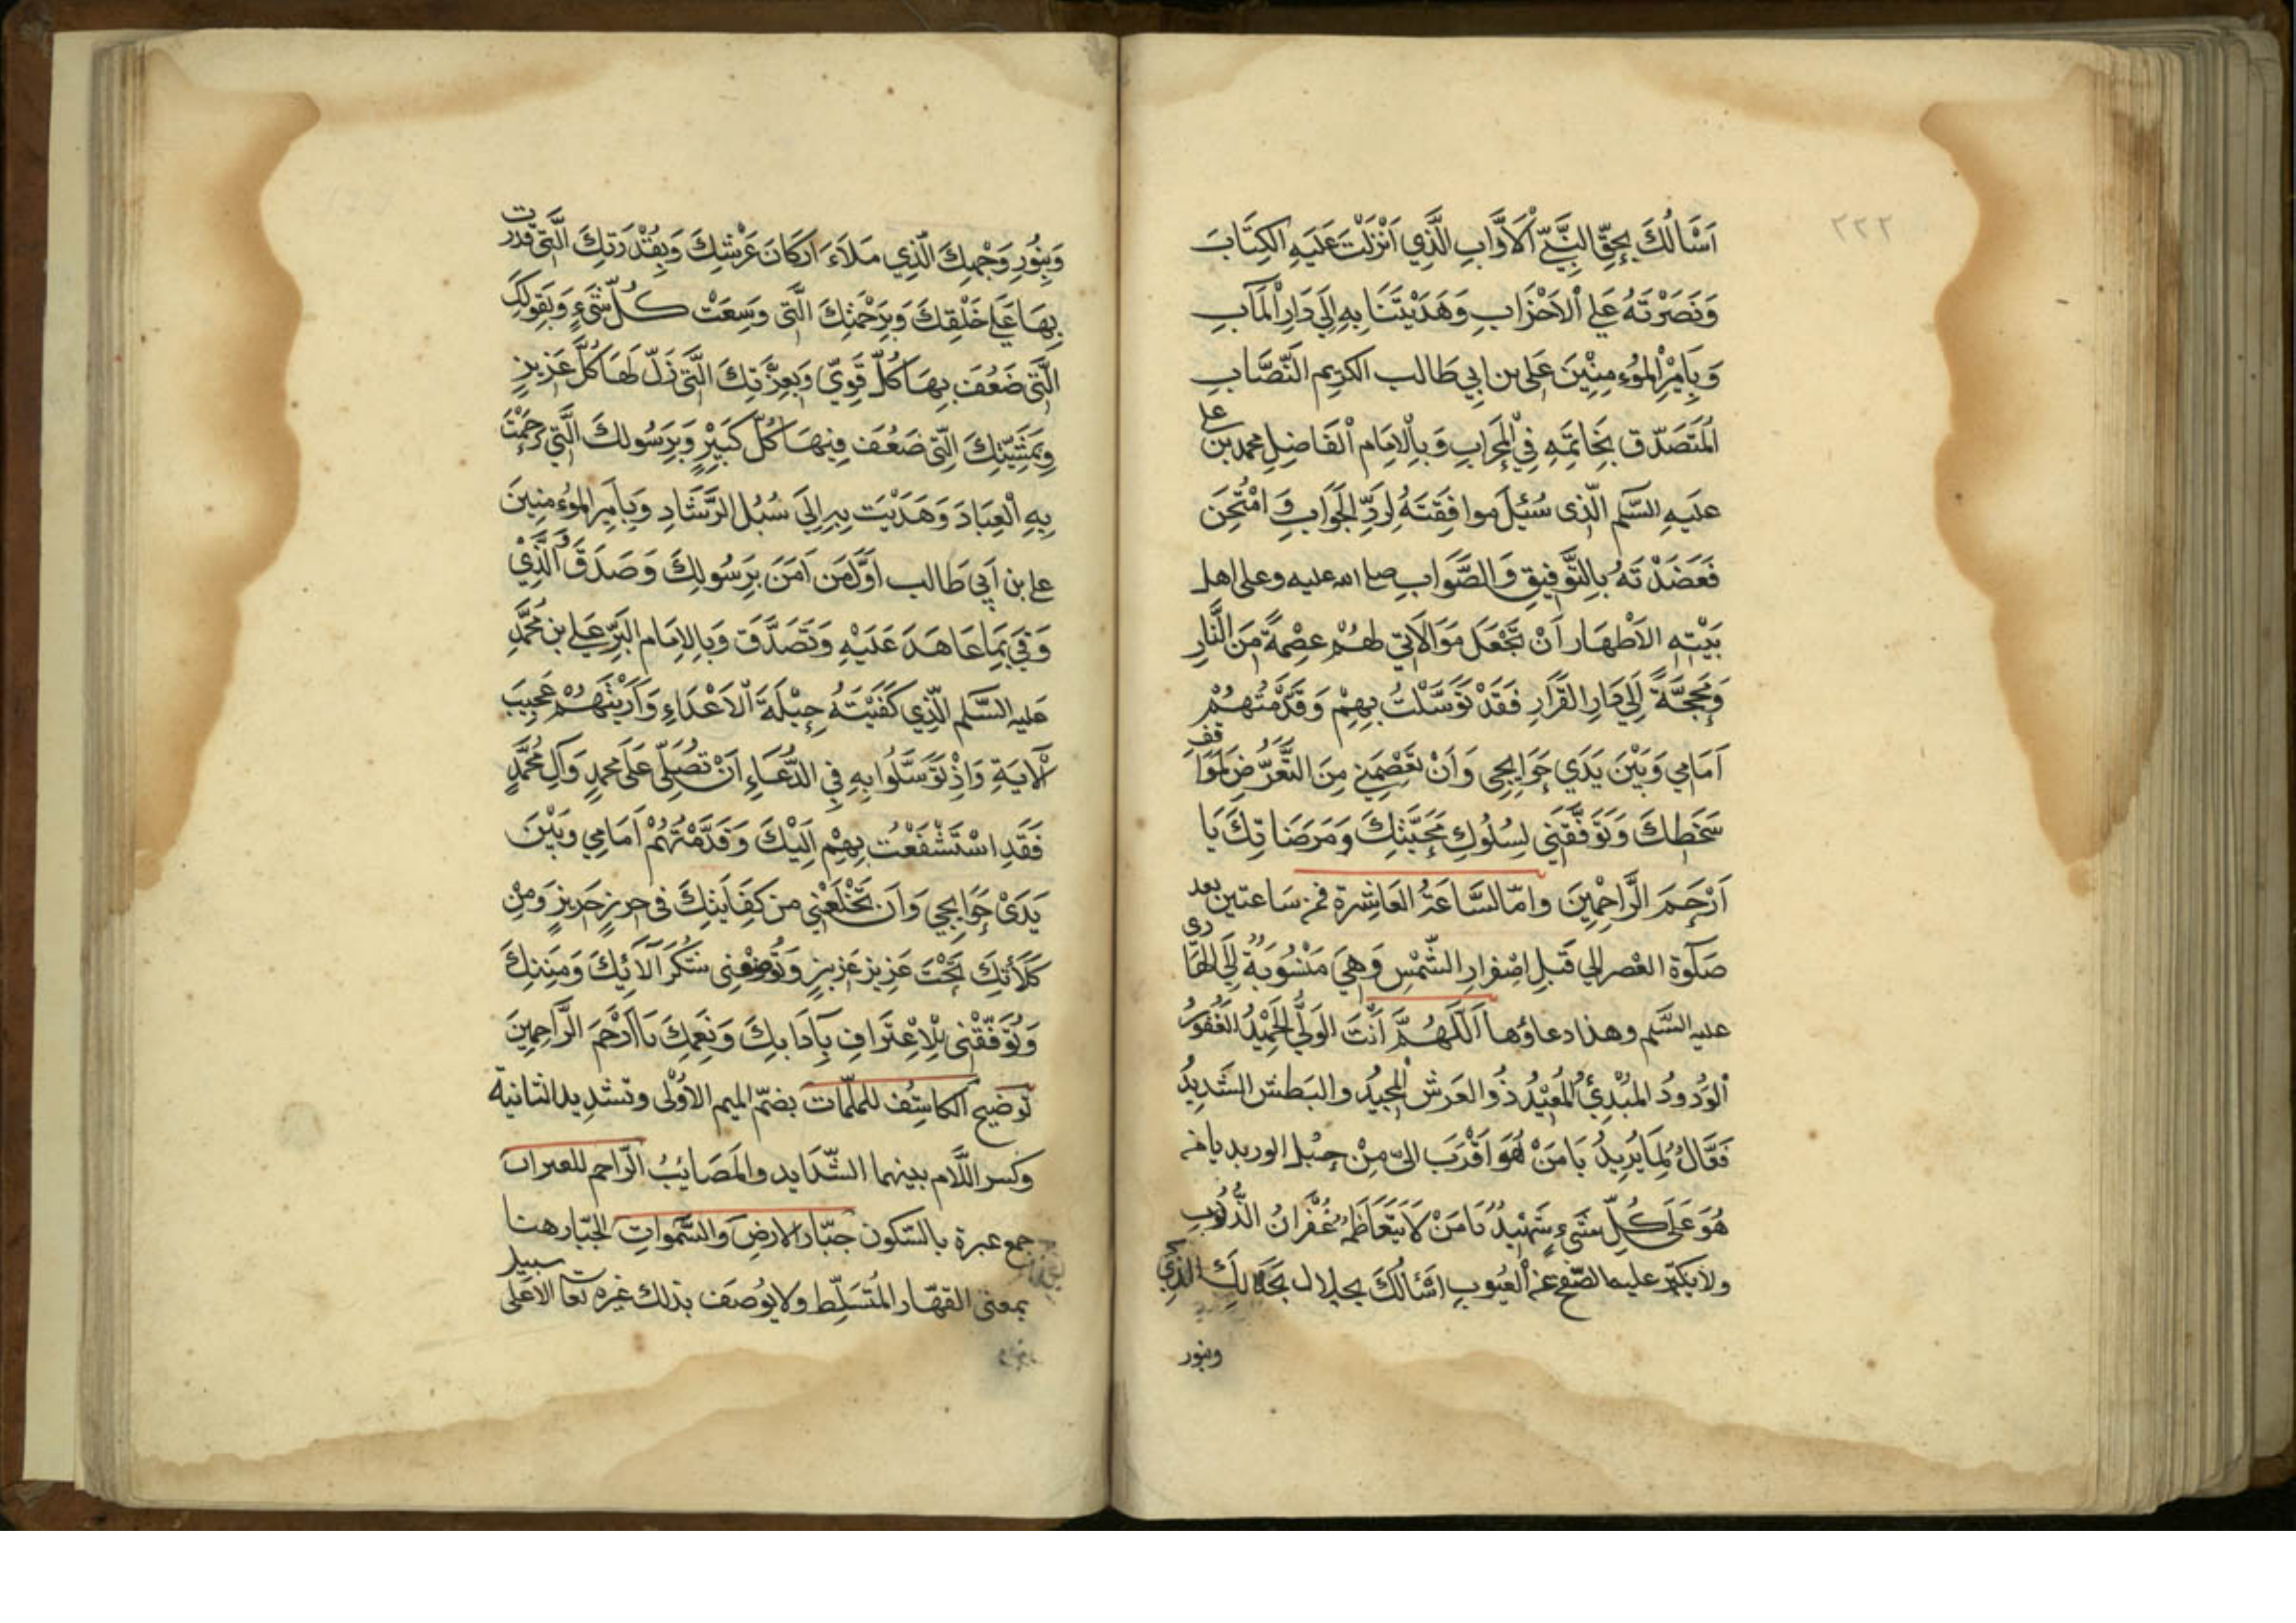 ٢٢٢
اَسْأَلُكَ بِحَقِّ النَّبِيِّ الْاَوَّابِ الَّذِي اَنْزَلْتَ عَلَيْهِ الكِتَابَ
وَنَصَرْتَهُ عَلَى الْاَحْزَابِ وَهَدَيْتَنَا بِهِ اِلَى دَارِ الْمَآبِ
وَبِاَمِيْرِ الْمُؤْمِنِيْنَ عَلى بن اَبِي طَالب الكريم النَّصَّابِ
المُتَصَدِّق بِخَاتَمِهِ فِي الْمِحْرَابِ وَبِالْاِمَام الْفَاضِلِ محمد بن على
عليهِ السَّلم الَّذى سُئِلَ موافِقَتَهُ لِرَدِّ الْجَوَابِ وَ امْتُحِنَ
فَعَضَدْتَهُ بِالتَّوْفِيقِ وَالصَّوَابِ صلى الله عليه وعلى اهل
بَيْتِهِ الْاَطْهَار اَنْ تَجْعَلَ مَوَالَاتِي لَهُمْ عِصْمَةً مِنَ النَّارِ
وَمَحَجَّةً اِلَى دَارِ الْقَرَارِ فَقَدْ تَوَسَّلْتُ بِهِمْ وَقَدَّمْتُهُمْ
اَمَامِي وَبَيْنَ يَدَي حَوَايِجِي وَاَنْ تَعْصِمَنِي مِنَ التَّعَرُّضِ لِمَوَاقف
سَخَطِكَ وَتَوَفَّقَنِي لِسُلُوكِ مَحَبَّتِكَ وَمَرَضَاتِكَ يَا
اَرْحَمَ الرَّاحِمِينَ وامّا السَّاعَةُ العَاشِرة فمن سَاعتين بعد
صَلوٰة العَصْر الى قَبلِ اِصْفِرارِ الشَّمْسِ وَهِيَ مَنْسُوبَةٌ اِلَى الهَادى
عليه السَّلم وهذا دعاؤها اَللّٰهُمَّ اَنْتَ الوَلِيُّ الحَمِيْدُ الغَفُورُ
الْوَدُودُ المُبْدِئُ الْمُعِيْدُ ذُو العَرشِ الْمَجِيدُ والبَطش الشَّدِيدُ
فَعَّالُ لِمَا يُرِيدُ يَا مَنْ هُوَ اَقْرَبَ الىّ مِنْ حبْل الوريد يا من
هُوَ عَلَى كُلِّ شَىءٍ شَهِيْدٌ يَا مَنْ لَا يَتَعَاظَمُهُ غُفْرَانُ الذُّنُوبِ
ولا يكبر عليه الصّفح عن العُيُوبِ اَسْأَلُكَ بجلالِ الَّذِي
وبنور
وَبِنُورِ وَجْهِكَ الَّذِي مَلَاءَ اَركَانَ عَرْشِكَ وَبِقُدْرَتِكَ الَّتِى قدرت
بِهَا عَلَى خَلْقِكَ وَبِرَحْمَتِكَ الَّتِى وَسِعَتْ كُلَّ شَيْءٍ وَبِقُوَّتِكَ
الَّتِى ضَعُفَ بِهَا كُلُّ قَوِيٍّ وَبِعِزَّتِكَ الَّتِى زَلَّ لَهَا كُلُّ عَزِيزٍ
وَبِمَشِيَّتِكَ الَّتِى ضَعُفَ فِيهَا كُلُّ كَبِيْرٍ وَبِرَسُولكَ الَّتِي رَحِمْتَ
بِهِ الْعِبَادَ وَهَدَيْتَ بِهِ اِلَى سُبُل الرَّشَادِ وَبِاَمِيرِ المؤمنِينَ
على بن اَبِي طَالب اَوَّلِ مَن اَمَنَ بِرَسُولِكَ وَصَدَقَ وَالَّذِيْ
وَفَى بِمَا عَاهَدَ عَلَيْهِ وَتَصَدَّقَ وَبِالاِمَام البَرِّ عَلى بن مُحَمَّدٍ
عَليه السَّلم الَّذِي كَفَيْتَهُ حِيْلَةَ الْاَعْدَاءِ وَاَرَيْتَهُمْ عَجِيبَ
الْآيَةِ وَاِذْ تَوَسَّلُوا بِهِ فِي الدُّعَاءِ اَنْ تُصَلِّى عَلَى محمدٍ وَآلِ مُحَمَّدٍ
فَقَدِ اسْتَشْفَعْتُ بِهِمْ اِلَيْكَ وَقَدَّمْتُهُمْ اَمَامِي وَبَيْنَ
يَدَىْ حَوَايِجِي وَاَن تَجْعَلَنِي من كِفَايَتِكَ فى حرزٍ حَرِيزٍ وَمِنْ
كَلَأتِكَ تَحْتَ عَزِيز عَزِيزٍ وَتُوزعْنِى شُكْرَ آلَآئِكَ وَمِنَنِكَ
وَتُوَفِّقْنِى لِلْاِعْتَرَافِ بِآَدَابِكَ وَنِعَمِكَ يَا اَرْحَمَ الرَّاحِمِينَ
تَوضيح الكاشِف للملمّات بضمّ الميم الاُوْلى وتشديد الثانية
وكسر اللَّام بينهما الشّدَايد والمَصَائِبُ الرّاحم للعبرات
جمع عبرة بالسّكون جبّار الارضِ والسَّموَاتِ الجَبّار هنا
بمعنى القهّار المُتَسَلِّط ولا يُوصَف بذلك غيره تعا الا عَلى سبيل